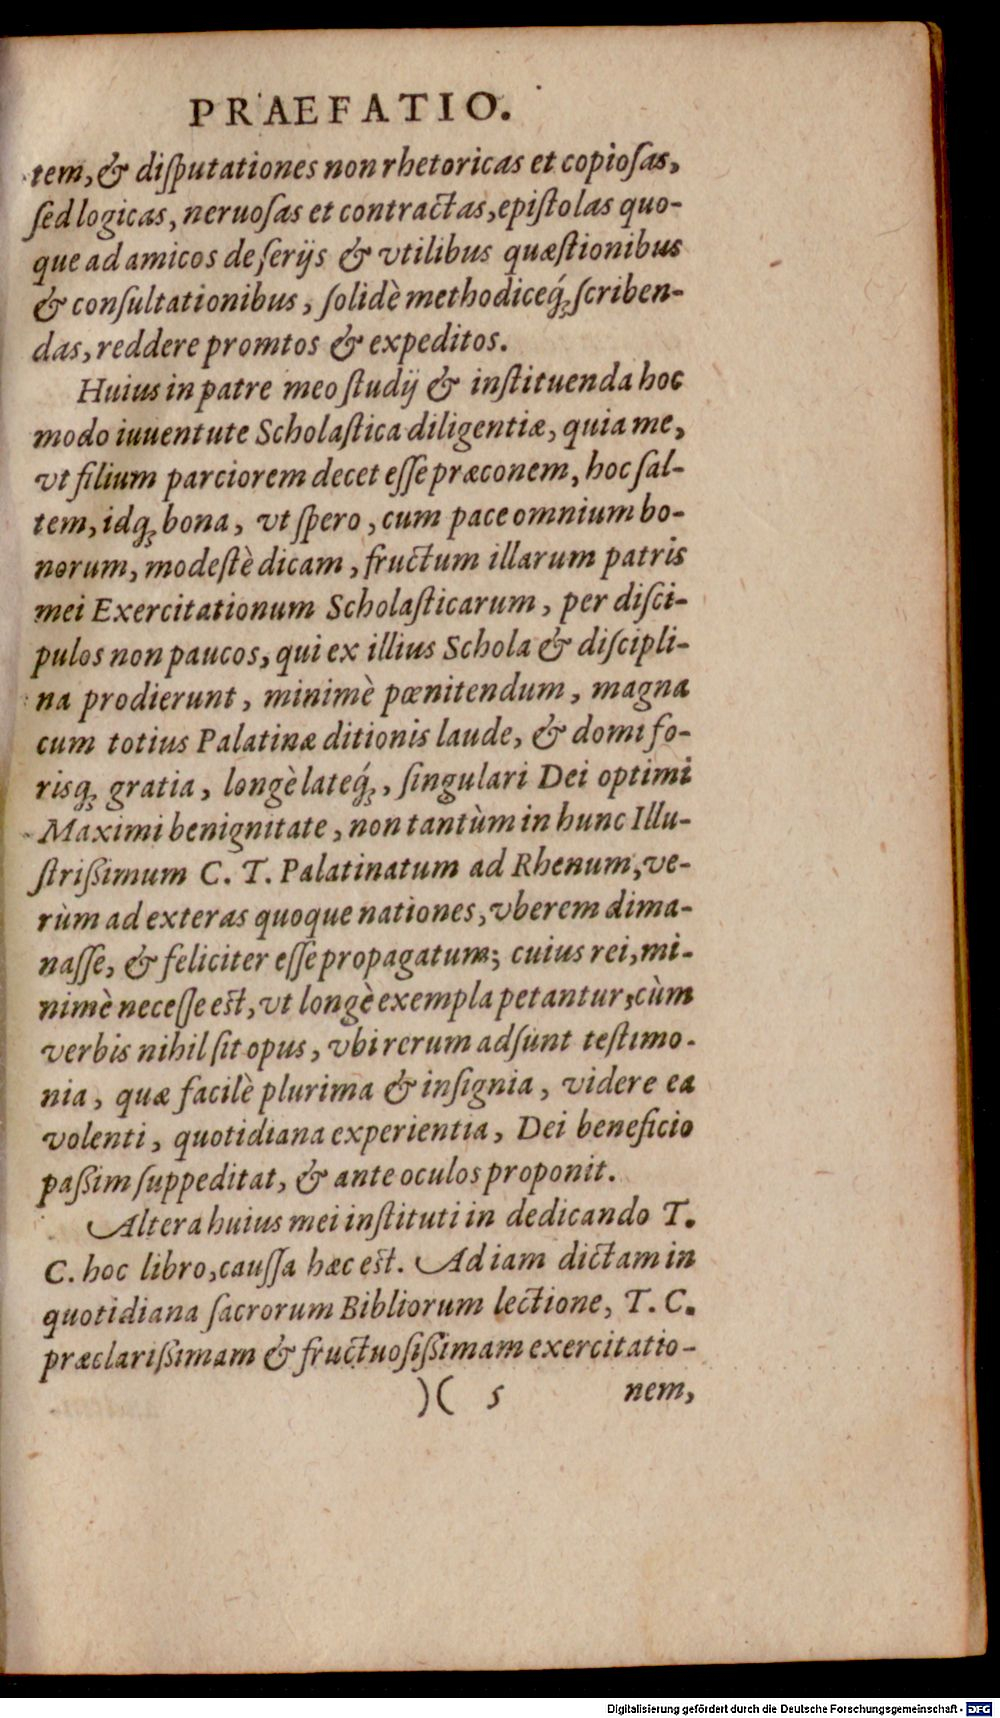 PRAEFATIO.
tem, & diſputationes non rhetoricas et copioſas,
ſed logicas, neruoſas et contractas, epiſtolas quo-
que ad amicos de ſerijs & vtilibus quæſtionibus
& conſultationibus, ſolidè methodiceq́; ſcriben-
das, reddere promtos & expeditos.
Huius in patre meo ſtudij & inſtituenda hoc
modo iuuentute Scholaſtica diligentiæ, quia me,
vt filium parciorem decet eſſe præconem, hoc ſal-
tem, idq; bona, vt ſpero, cum pace omnium bo-
norum, modeſtè dicam, fructum illarum patris
mei Exercitationum Scholaſticarum, per diſci-
pulos non paucos, qui ex illius Schola & diſcipli-
na prodierunt, minimè pœnitendum, magna
cum totius Palatinæ ditionis laude, & domi fo-
risq; gratia, longè lateq́;, ſingulari Dei optimi
Maximi benignitate, non tantùm in hunc Illu-
ſtrißimum C. T. Palatinatum ad Rhenum, ve-
rùm ad exteras quoque nationes, vberem dima-
naſſe, & feliciter eſſe propagatum; cuius rei, mi-
nimè neceſſe est, vt longè exempla petantur, cùm
verbis nihil ſit opus, vbi rerum adſunt teſtimo-
nia, quæ facilè plurima & inſignia, videre ea
volenti, quotidiana experientia, Dei beneficio
paßim ſuppeditat, & ante oculos proponit.
Altera huius mei inſtituti in dedicando T.
C. hoc libro, cauſſa hæc est. Ad iam dictam in
quotidiana ſacrorum Bibliorum lectione, T. C.
præclarißimam & fructuoſißimam exercitatio-
)( 5 nem,
Digitalisierung gefördert durch die Deutsche Forschungsgemeinschaft - DFG